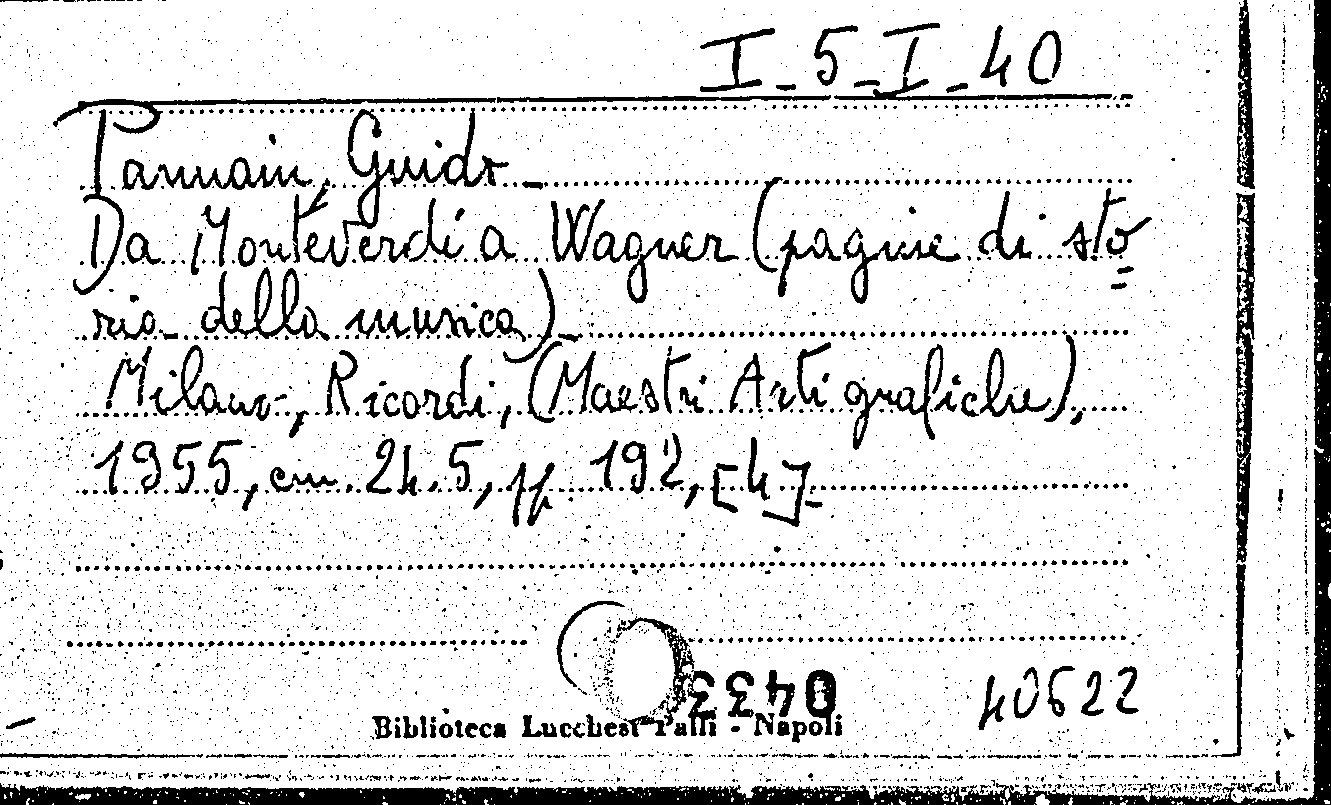 I_5_I_40
Pannain, Guido_
Da Monteverdi a Wagner (pagine di sto=
ria della musica)_
Milano, Ricordi, (Maestri Arti grafiche),
1955, cm. 24.5, pp 192, [4]_
0433
40622
Biblioteca Lucchesi Palli - Napoli